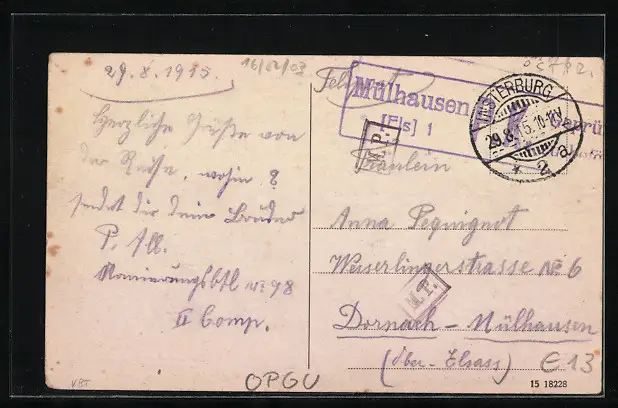 29.8.1915.
Herzliche Grüße von
der Reise, wohin ?
sendet dir dein Bruder
P. Alb.
Armierungsbtl № 98
II Comp.
Mülhausen
[Els] 1
Geprü
INSTERBURG
29.8.15.10-11V
* 2 a
M.P.
Fräulein
Anna Pequignot
Wesserlingerstrasse № 6
M.P.
Dornach - Mülhausen
(Ober-Elsass)
€13
OPGU
VBT
15 18228